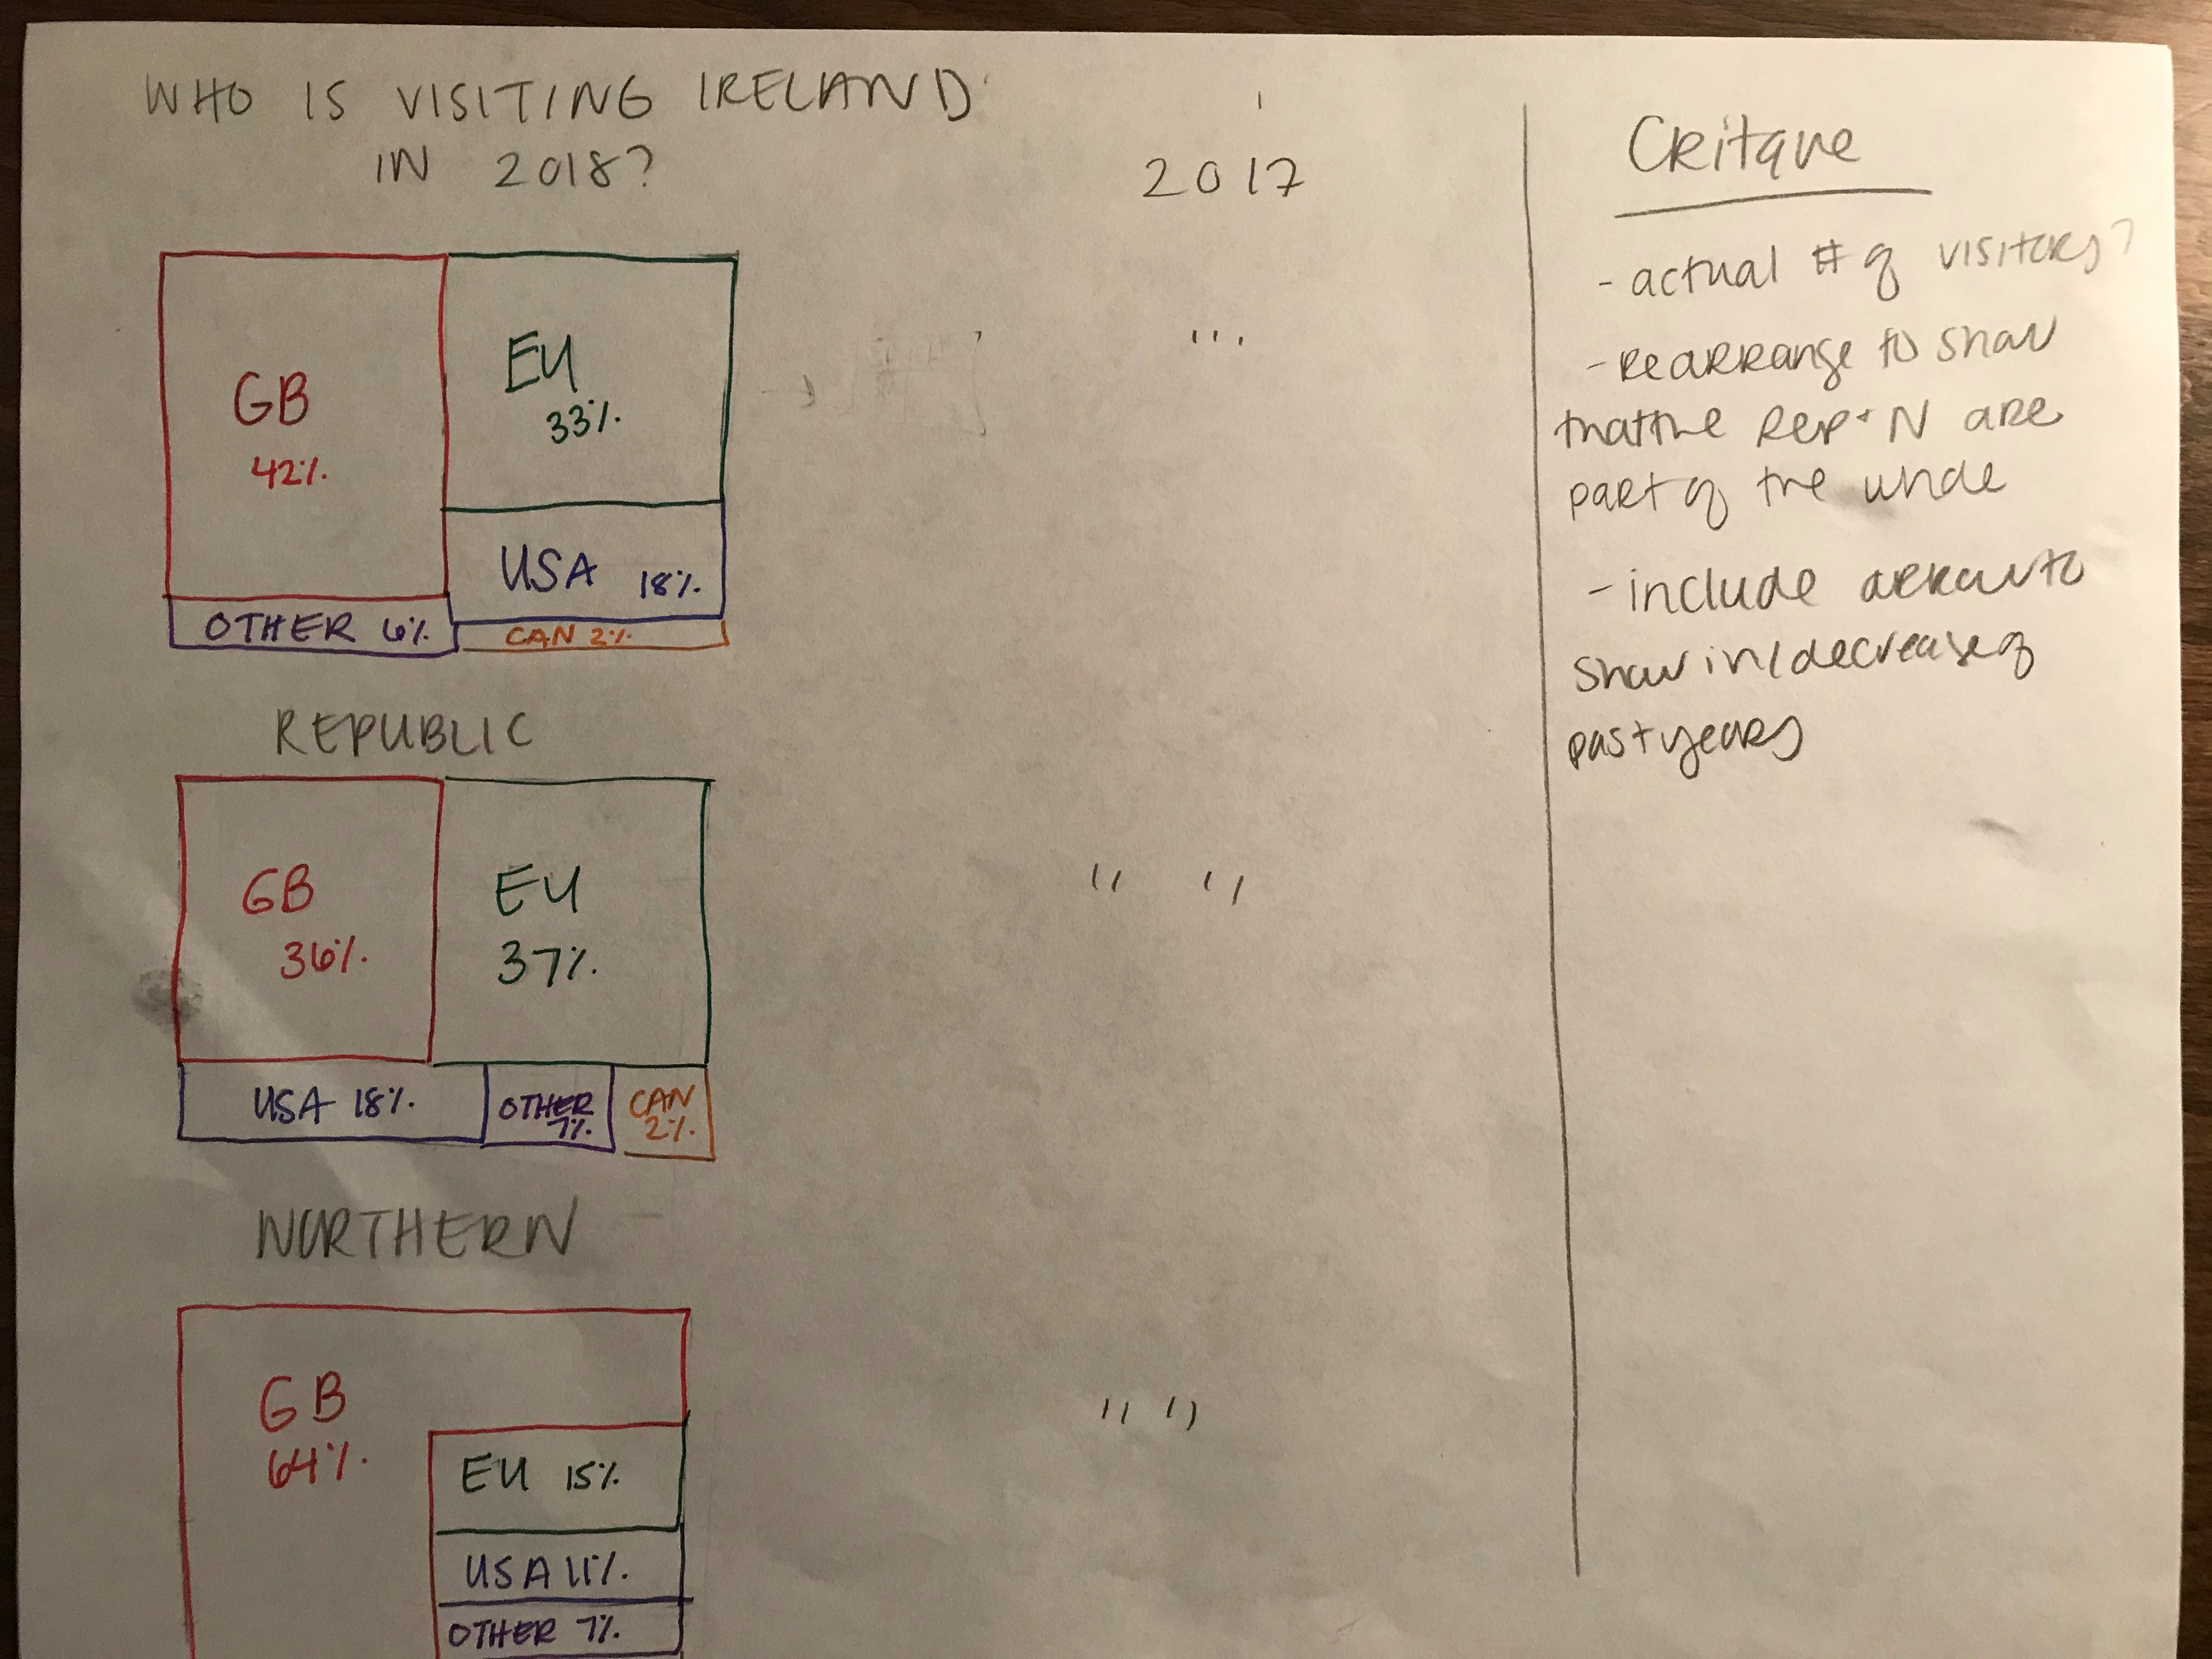 WHO IS VISITING IRELAND
IN 2018?
GB
42%
EU
33%
USA 18%
OTHER 6%
CAN 2%
REPUBLIC
GB
36%
EU
37%
USA 18%
OTHER
7%
CAN
2%
NORTHERN
GB
64%
EU 15%
USA 11%
OTHER 7%
2017
" "
" "
Critque
- actual # of visitors?
- Rearrange to show
that the Rep + N are
part of the whole
- include arrow to
show in/decrease of
past years